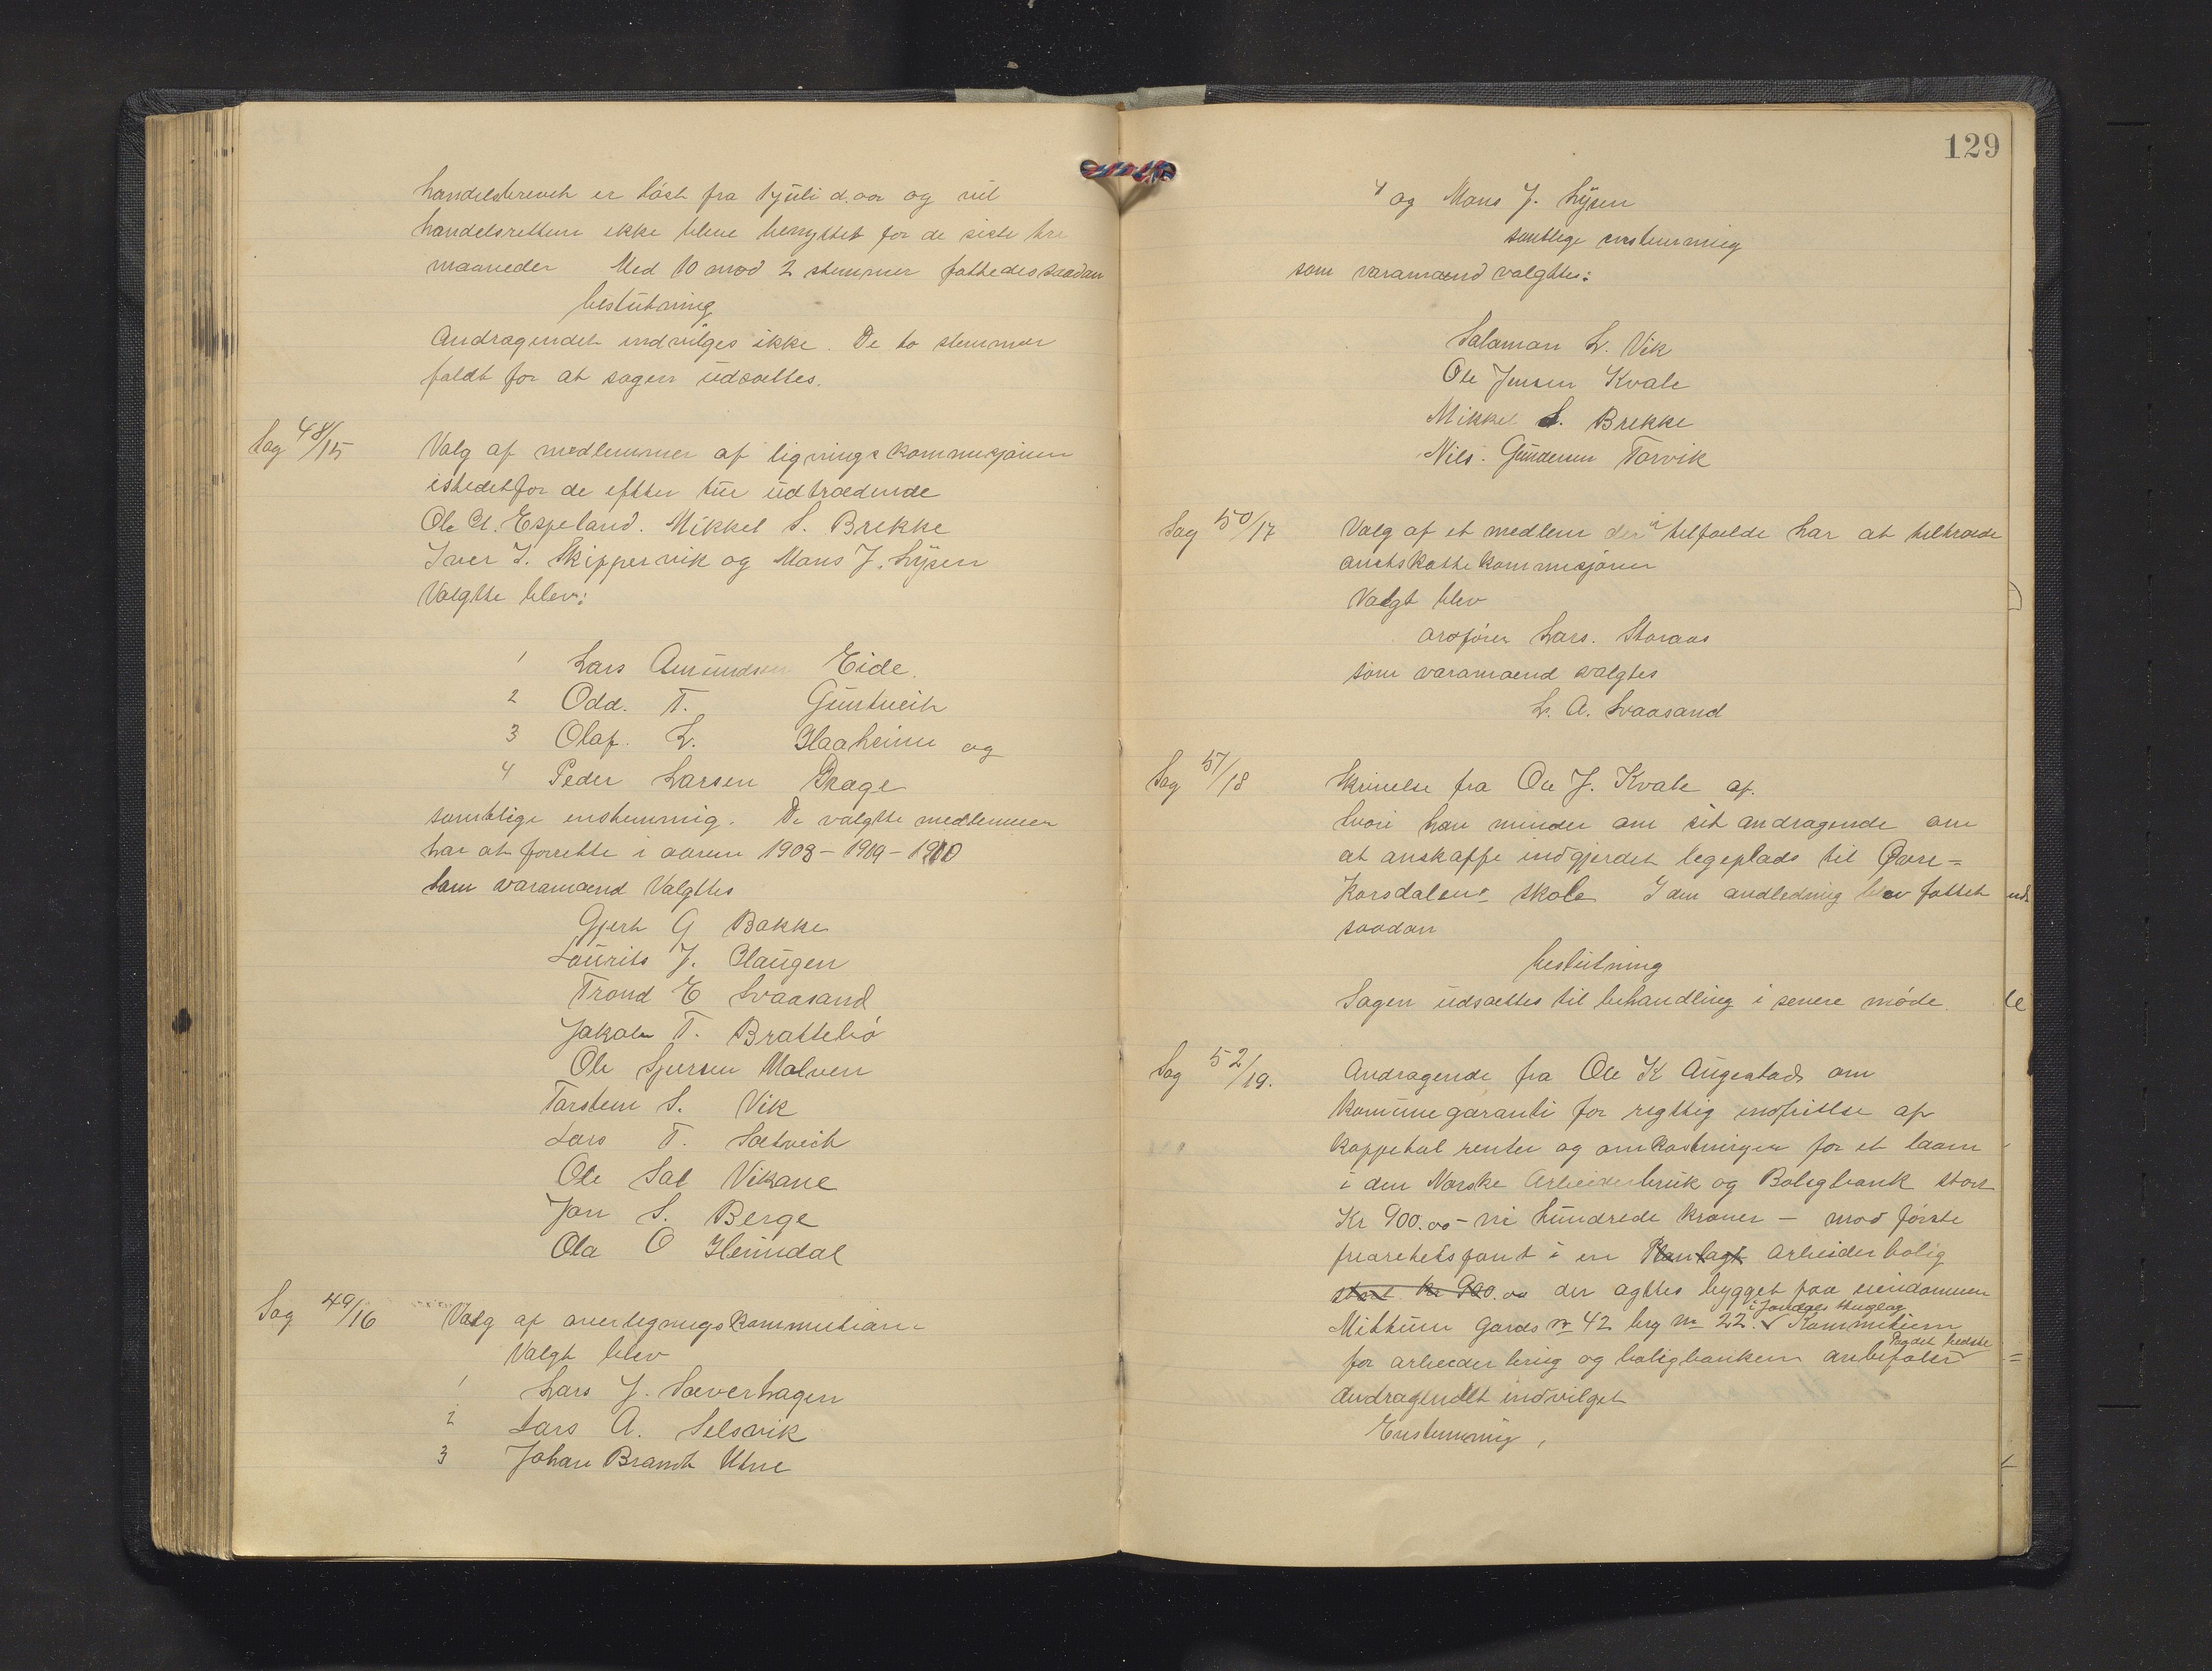 handelsbrevet er löst fra 1 juli d.aa og vil
handelsretten ikke bleve benyttet for de siste tre
maaneder Med 10 mod 2 stemmer fattedes saadan
beslutning
Andragendet indvilges ikke. De to stemmer
faldt for at sagen udsættes.
Sag 48/15 Valg af medlemmer af ligningskommisjonen
istedetfor de efter tur udtrædende
Ole A. Espeland. Mikkel S. Brekke
Iver I. Skippervik og Mons J. Lysen
Valgtte blev:
1 Lars Amundsen Eide.
2 Odd. T. Guntveit
3 Olaf. L. Haaheim og
4 Peder Larsen Drage
samtlige enstemmig. De valgtte medlemmer
har at forrette i aarene 1908-1909-1910
Som varamænd Valgttes
Gjert G Bakke
Laurits J. Haugen
Trond E Svaasand
Jakob T. Brattebö
Ole Sjursen Malven
Torstein S. Vik
Lars T. Sætveit
Ole Sal Vikane
Jon S. Berge
Ola O Heimdal
Sag 49/16 Valg af overligningskommitian
Valgt blev
1 Lars J. Sæverhagen
2 Lars A. Selsvik
3 Johan Brandt Utne
129
4 og Mons J. Lysen
samtlige enstemmig
som varamænd valgttes:
Salamon L. Vik
Ole Jensen Kvale
Mikkel S. Brekke
Nils. Gundersen Torvik
Sag 50/17 Valg af et medlem der i tilfælde har at tiltræde
amtskattekommisjonen
Valgt blev
ordförer Lars. Storaas
som varamænd valgtes
L. A. Svaasand
Sag 51/18 Skrivelse fra Ole J. Kvale af.
hvori han minder om sit andragende om
at anskaffe indgjerdet legeplads til Övre=
Korsdalens skole I den andledning blev fattet
saadan
beslutning
Sagen udsættes til behandling i senere möde.
Sag 52/19. Andragende fra Ole K Augestad om
Komunegaranti for regttig indfrielse af
kappetal renter og omkostninger for et laan
i den Norske Arbeiderbruk og Boligbank stort
Kr 900.00 - ni hundrede kroner - mod förste
prioretetspant i en Planlagt arbeiderbolig
stort kr 900.00 der agttes bygget paa eiendommen
i Jondages thinglag
Mithun Gards No 42 brg No 22. Kommitien
Paa det bedste
for arbeiderbrug og boligbanken anbefaler
Andragendet indvilget
Enstemmig,